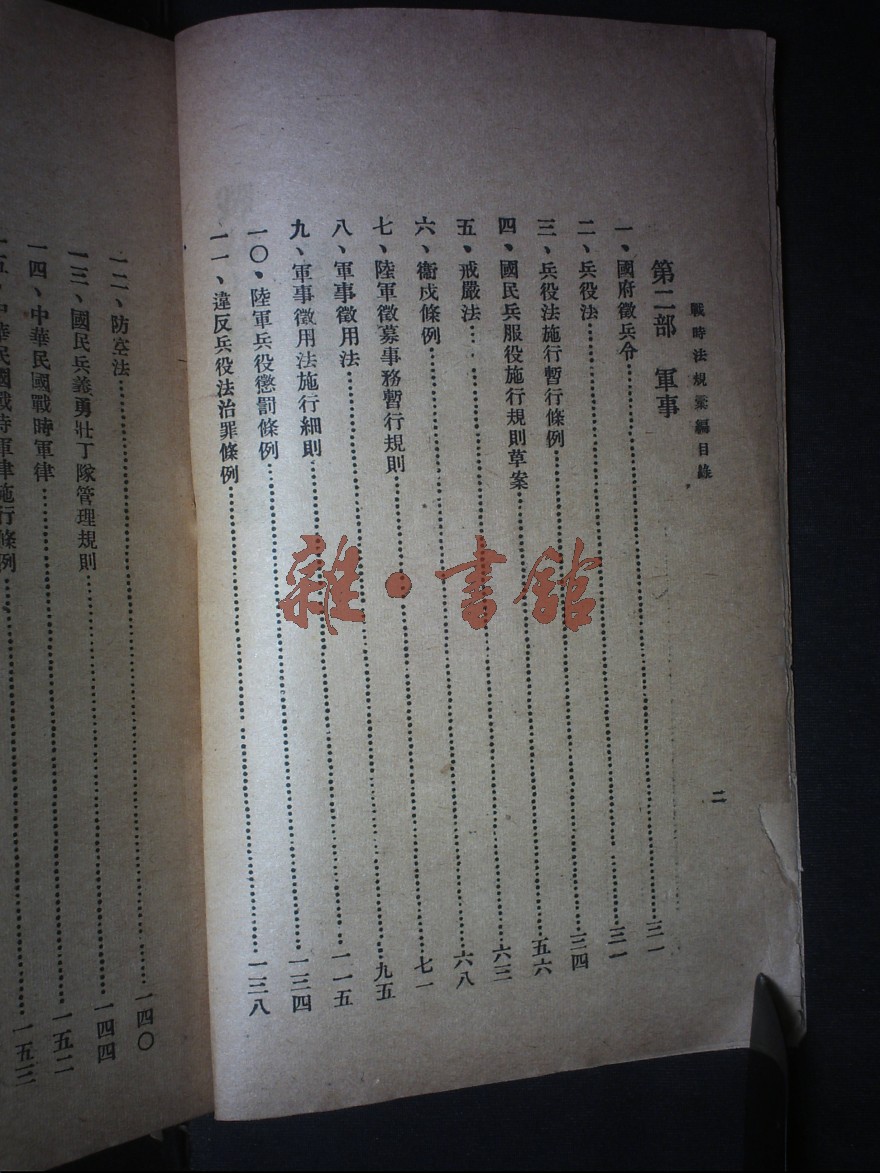 戰時法規彙編目錄 二
第二部 軍事
一、國府徵兵令……三一
二、兵役法……三一
三、兵役法施行暫行條例……三四
四、國民兵服役施行規則草案……五六
五、戒嚴法……六三
六、衞戍條例……六八
七、陸軍徵募事務暫行規則……七一
八、軍事徵用法……九五
九、軍事徵用法施行細則……一一五
一〇、陸軍兵役懲罰條例……一三四
一一、違反兵役法治罪條例……一三八
一二、防空法……一四〇
一三、國民兵義勇壯丁隊管理規則……一四四
一四、中華民國戰時軍律……一五二
一五、中華民國戰時軍律施行條例……一五三
雜·書館